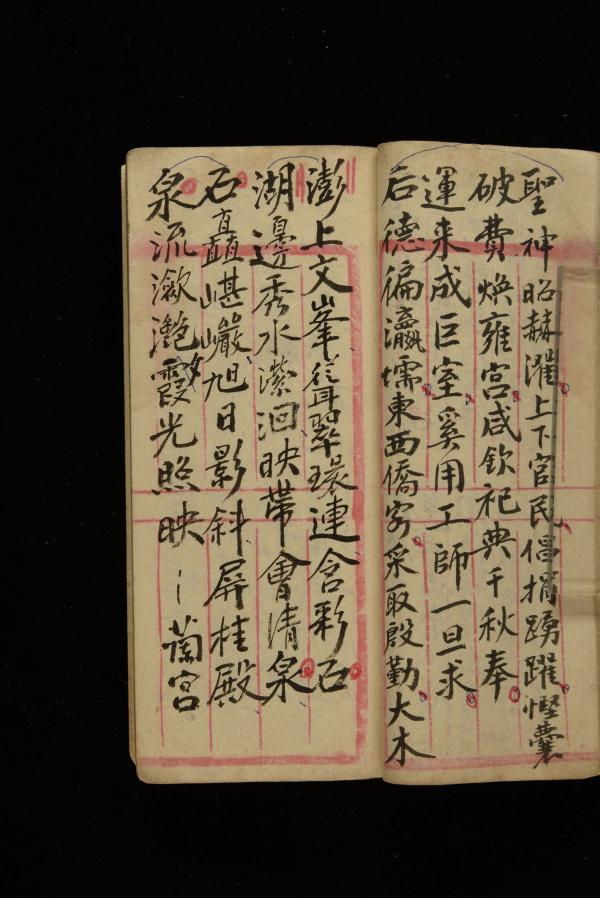 聖神昭赫濯上下官民倡捐踴躍慳囊
破費煥雍宮咸欽祀典千秋奉
運来成巨室奚用工師一旦求
后德徧瀛壖東西僑客采取殷勤大木
澎上文峯聳翠環連含彩石
湖邊秀水瀠洄映帶會清泉
石矗嵁巖旭日影斜屏桂殿
泉流瀲灧霞光照映蘭宮